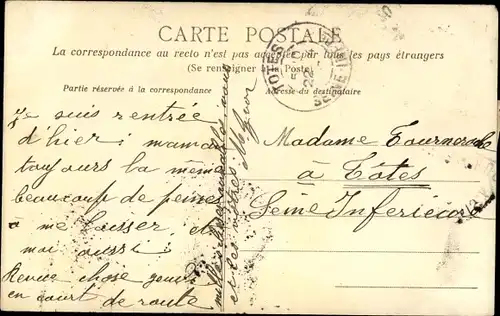 CARTE POSTALE
La correspondance au recto n'est pas acceptée par tous les pays étrangers
(Se renseigner à la Poste)
Partie réservée à la correspondance
Adresse du destinataire
TOTES
22
SEINE
Je suis rentrée
d'hier; maman
toujours la même
beaucoup de peines
à me laisser, et
moi aussi;
chose
en court de route
mille de nous
et les
Madame
à Tôtes
Seine Inférieure